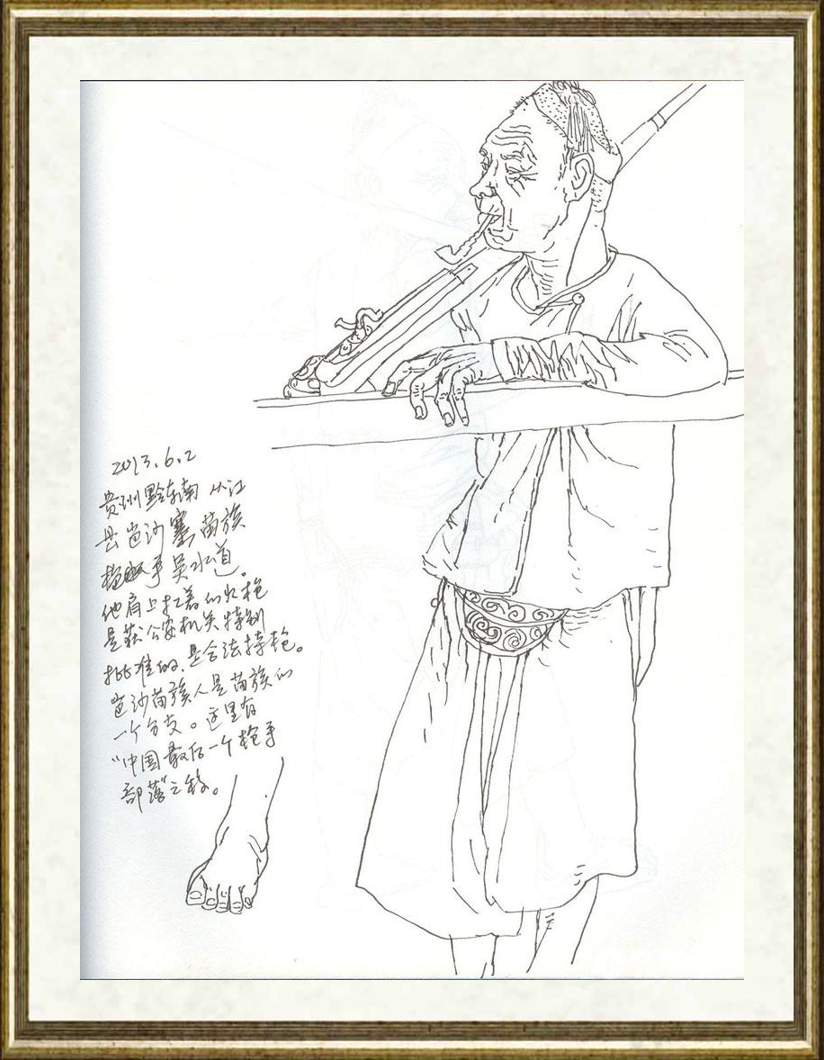 2013.6.2
贵州黔东南 从江
县岜沙寨苗族
枪手吴水道.
他肩上扛着的火枪
是获公安机关特别
批准的,是合法持枪。
岜沙苗族人是苗族的
一个分支。这里有
“中国最后一个枪手
部落”之称。